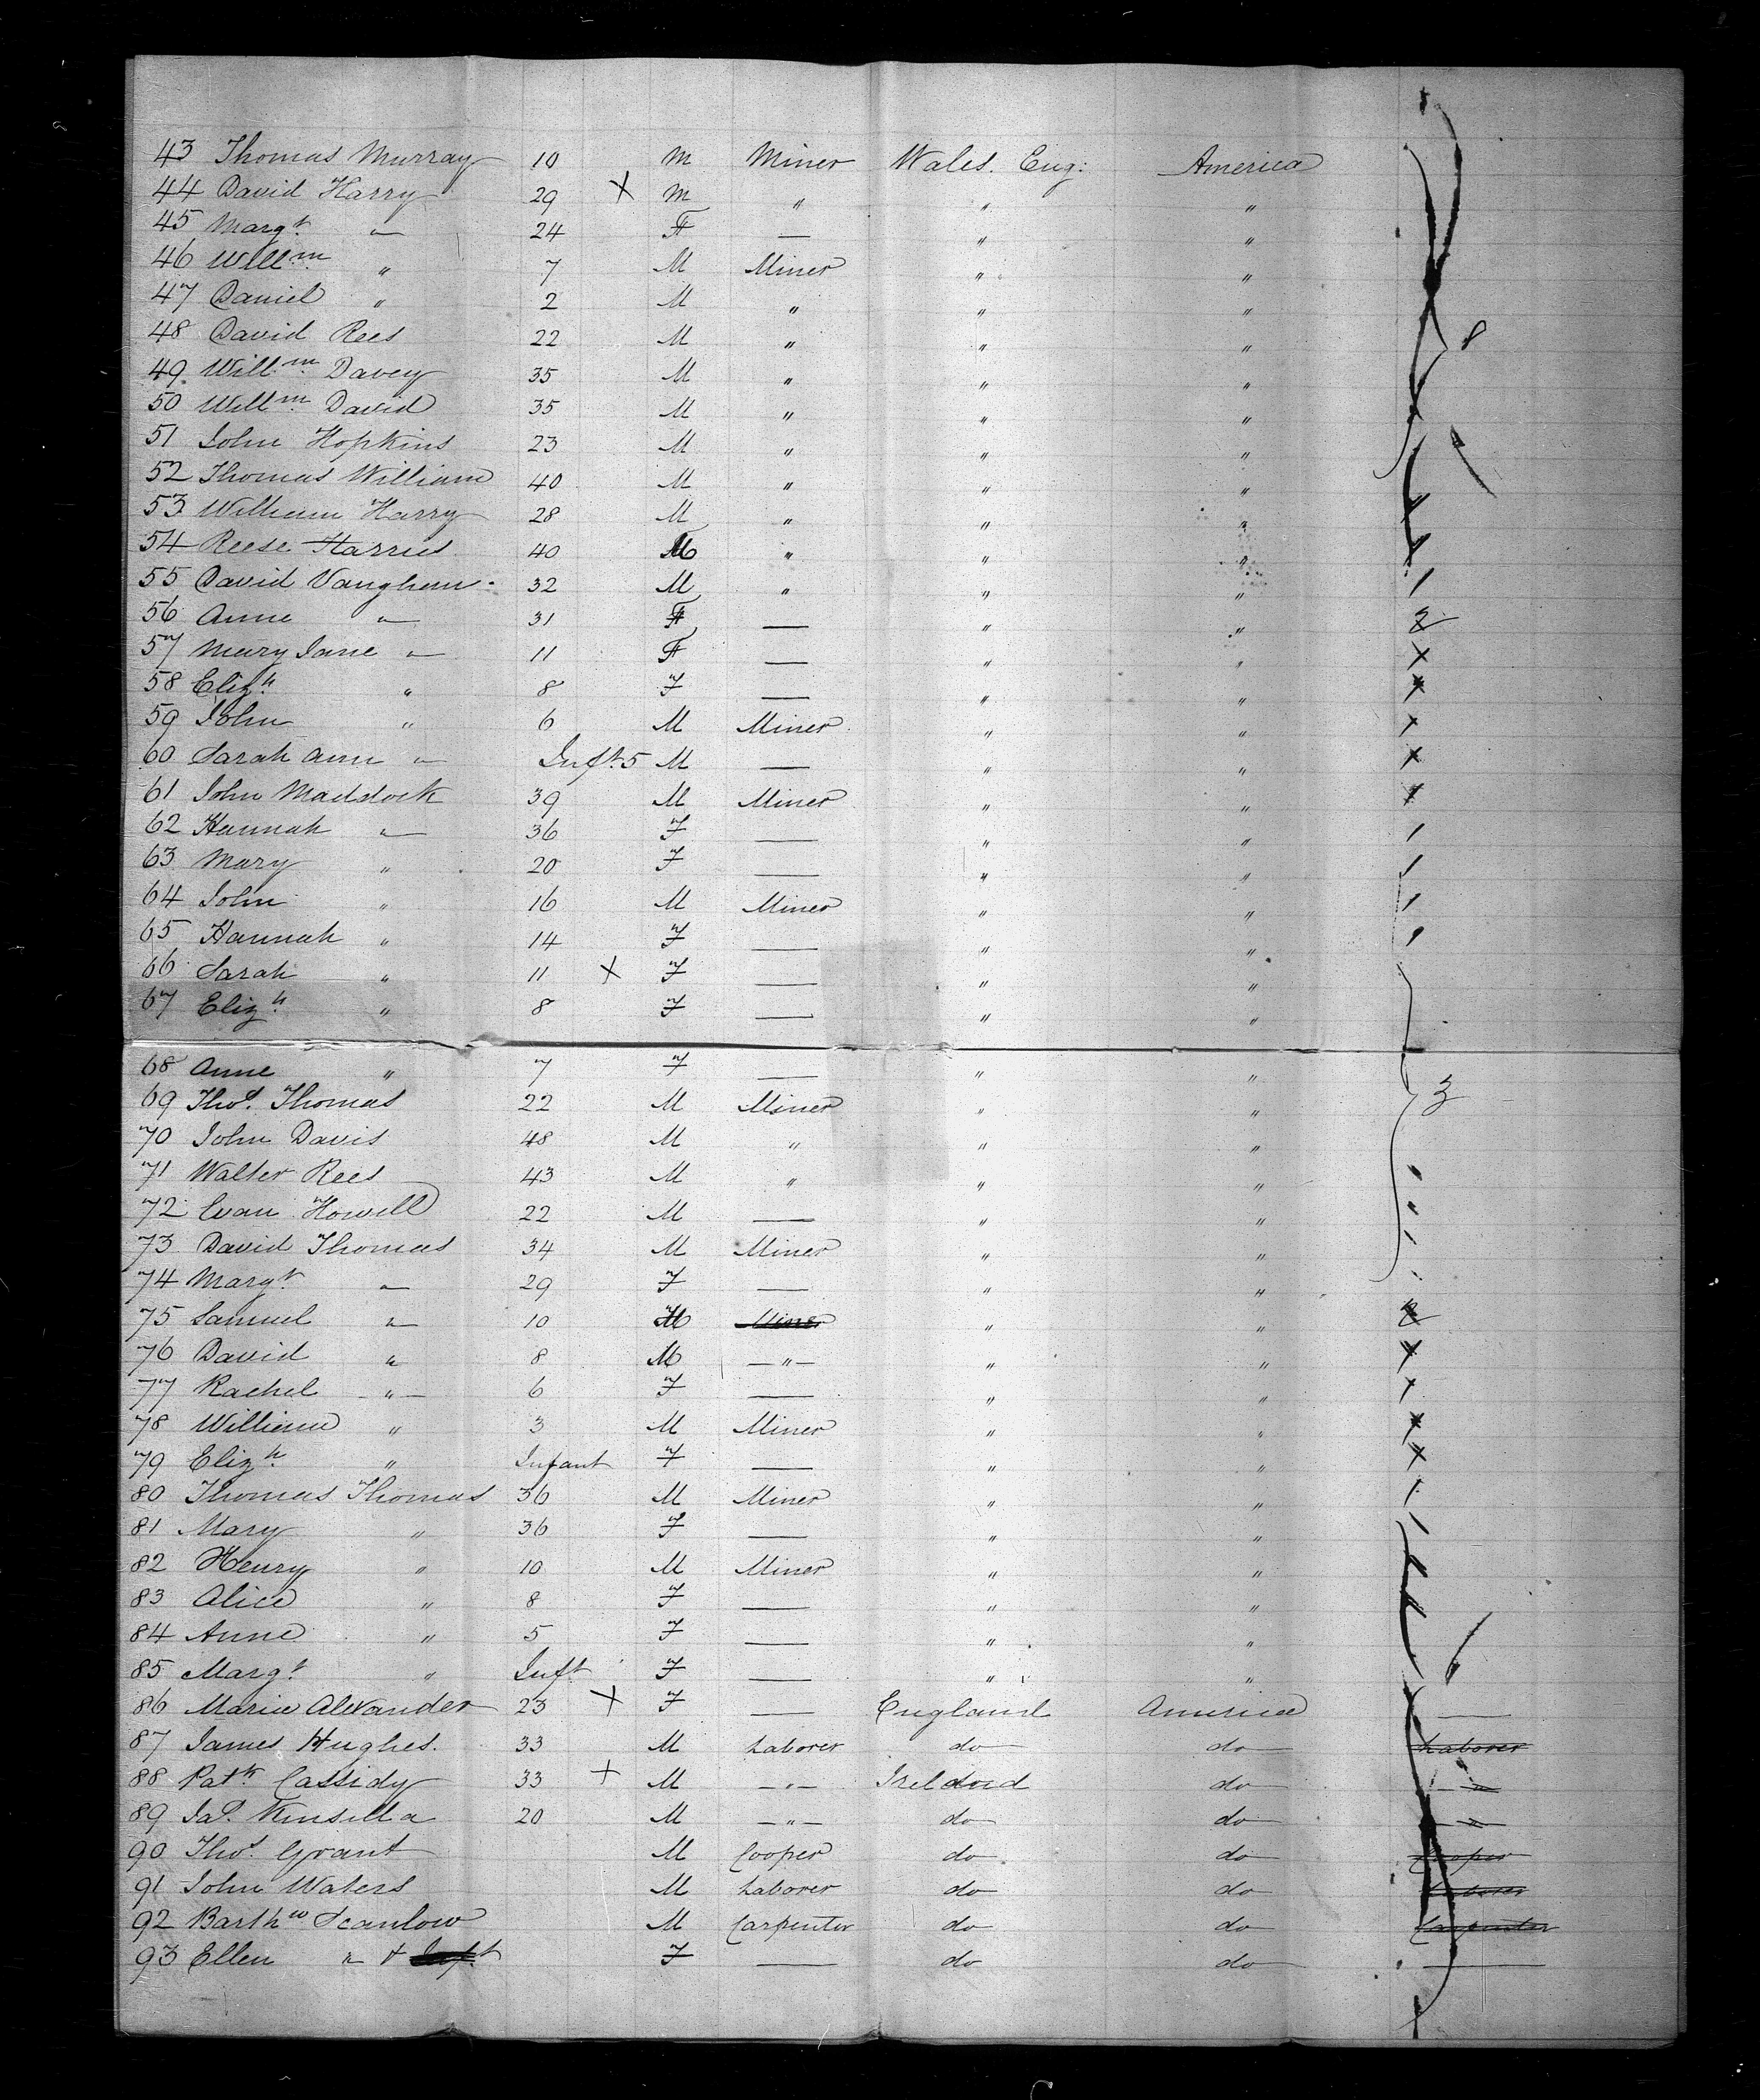 43 Thomas Murray 10 M Miner Wales. Eng: America
44 David Harry 29 X M " " "
45 Margt " 24 F — " "
46 Willm " 7 M Miner " "
47 Daniel " 2 M " " "
48 David Rees 22 M " " " 8
49 Willm Davey 35 M " " "
50 Willm David 35 M " " "
51 John Hopkins 23 M " " "
52 Thomas William 40 M " " "
53 William Harry 28 M " " "
54 Reese Harries 40 M " " "
55 David Vaughan 32 M " " " 1
56 Anne " 31 F — " " 2
57 Mary Jane " 11 F — " " X
58 Elizh " 8 F — " " X
59 John " 6 M Miner " " X
60 Sarah Ann " Inft 5 M — " " X
61 John Maddock 39 M Miner " " 1
62 Hannah " 36 F — " " 1
63 Mary " 20 F — " " 1
64 John " 16 M Miner " " 1
65 Hannah " 14 F — " " 1
66 Sarah " 11 X F — " "
67 Elizh " 8 F — " "
68 Anne " 7 F — " "
69 Thos. Thomas 22 M Miner " " 3
70 John Davis 48 M " " "
71 Walter Rees 43 M " " "
72 Evan Howell 22 M — " "
73 David Thomas 34 M Miner " "
74 Margt " 29 F — " "
75 Samuel " 10 M Miner " " 2
76 David " 8 M — " — " " X
77 Rachel — " — 6 F — " " X
78 William " 3 M Miner " " X
79 Elizh " Infant F — " " X
80 Thomas Thomas 36 M Miner " " 1
81 Mary " 36 F — " " 1
82 Henry " 10 M Miner " "
83 Alice " 8 F — " "
84 Anne " 5 F — " "
85 Margt " Inft F — " "
86 Maria Alexander 23 X F — England America —
87 James Hughes. 33 M Laborer do do Laborer
88 Patk Cassidy 33 X M — " — Ireland do — " —
89 Jas. Kinsilla 20 M — " — do do — " —
90 Thos. Grant M Cooper do do Cooper
91 John Waters M Laborer do do Laborer
92 Barthw Scanlow M Carpenter do do Carpenter
93 Ellen " + Inft F — do do —